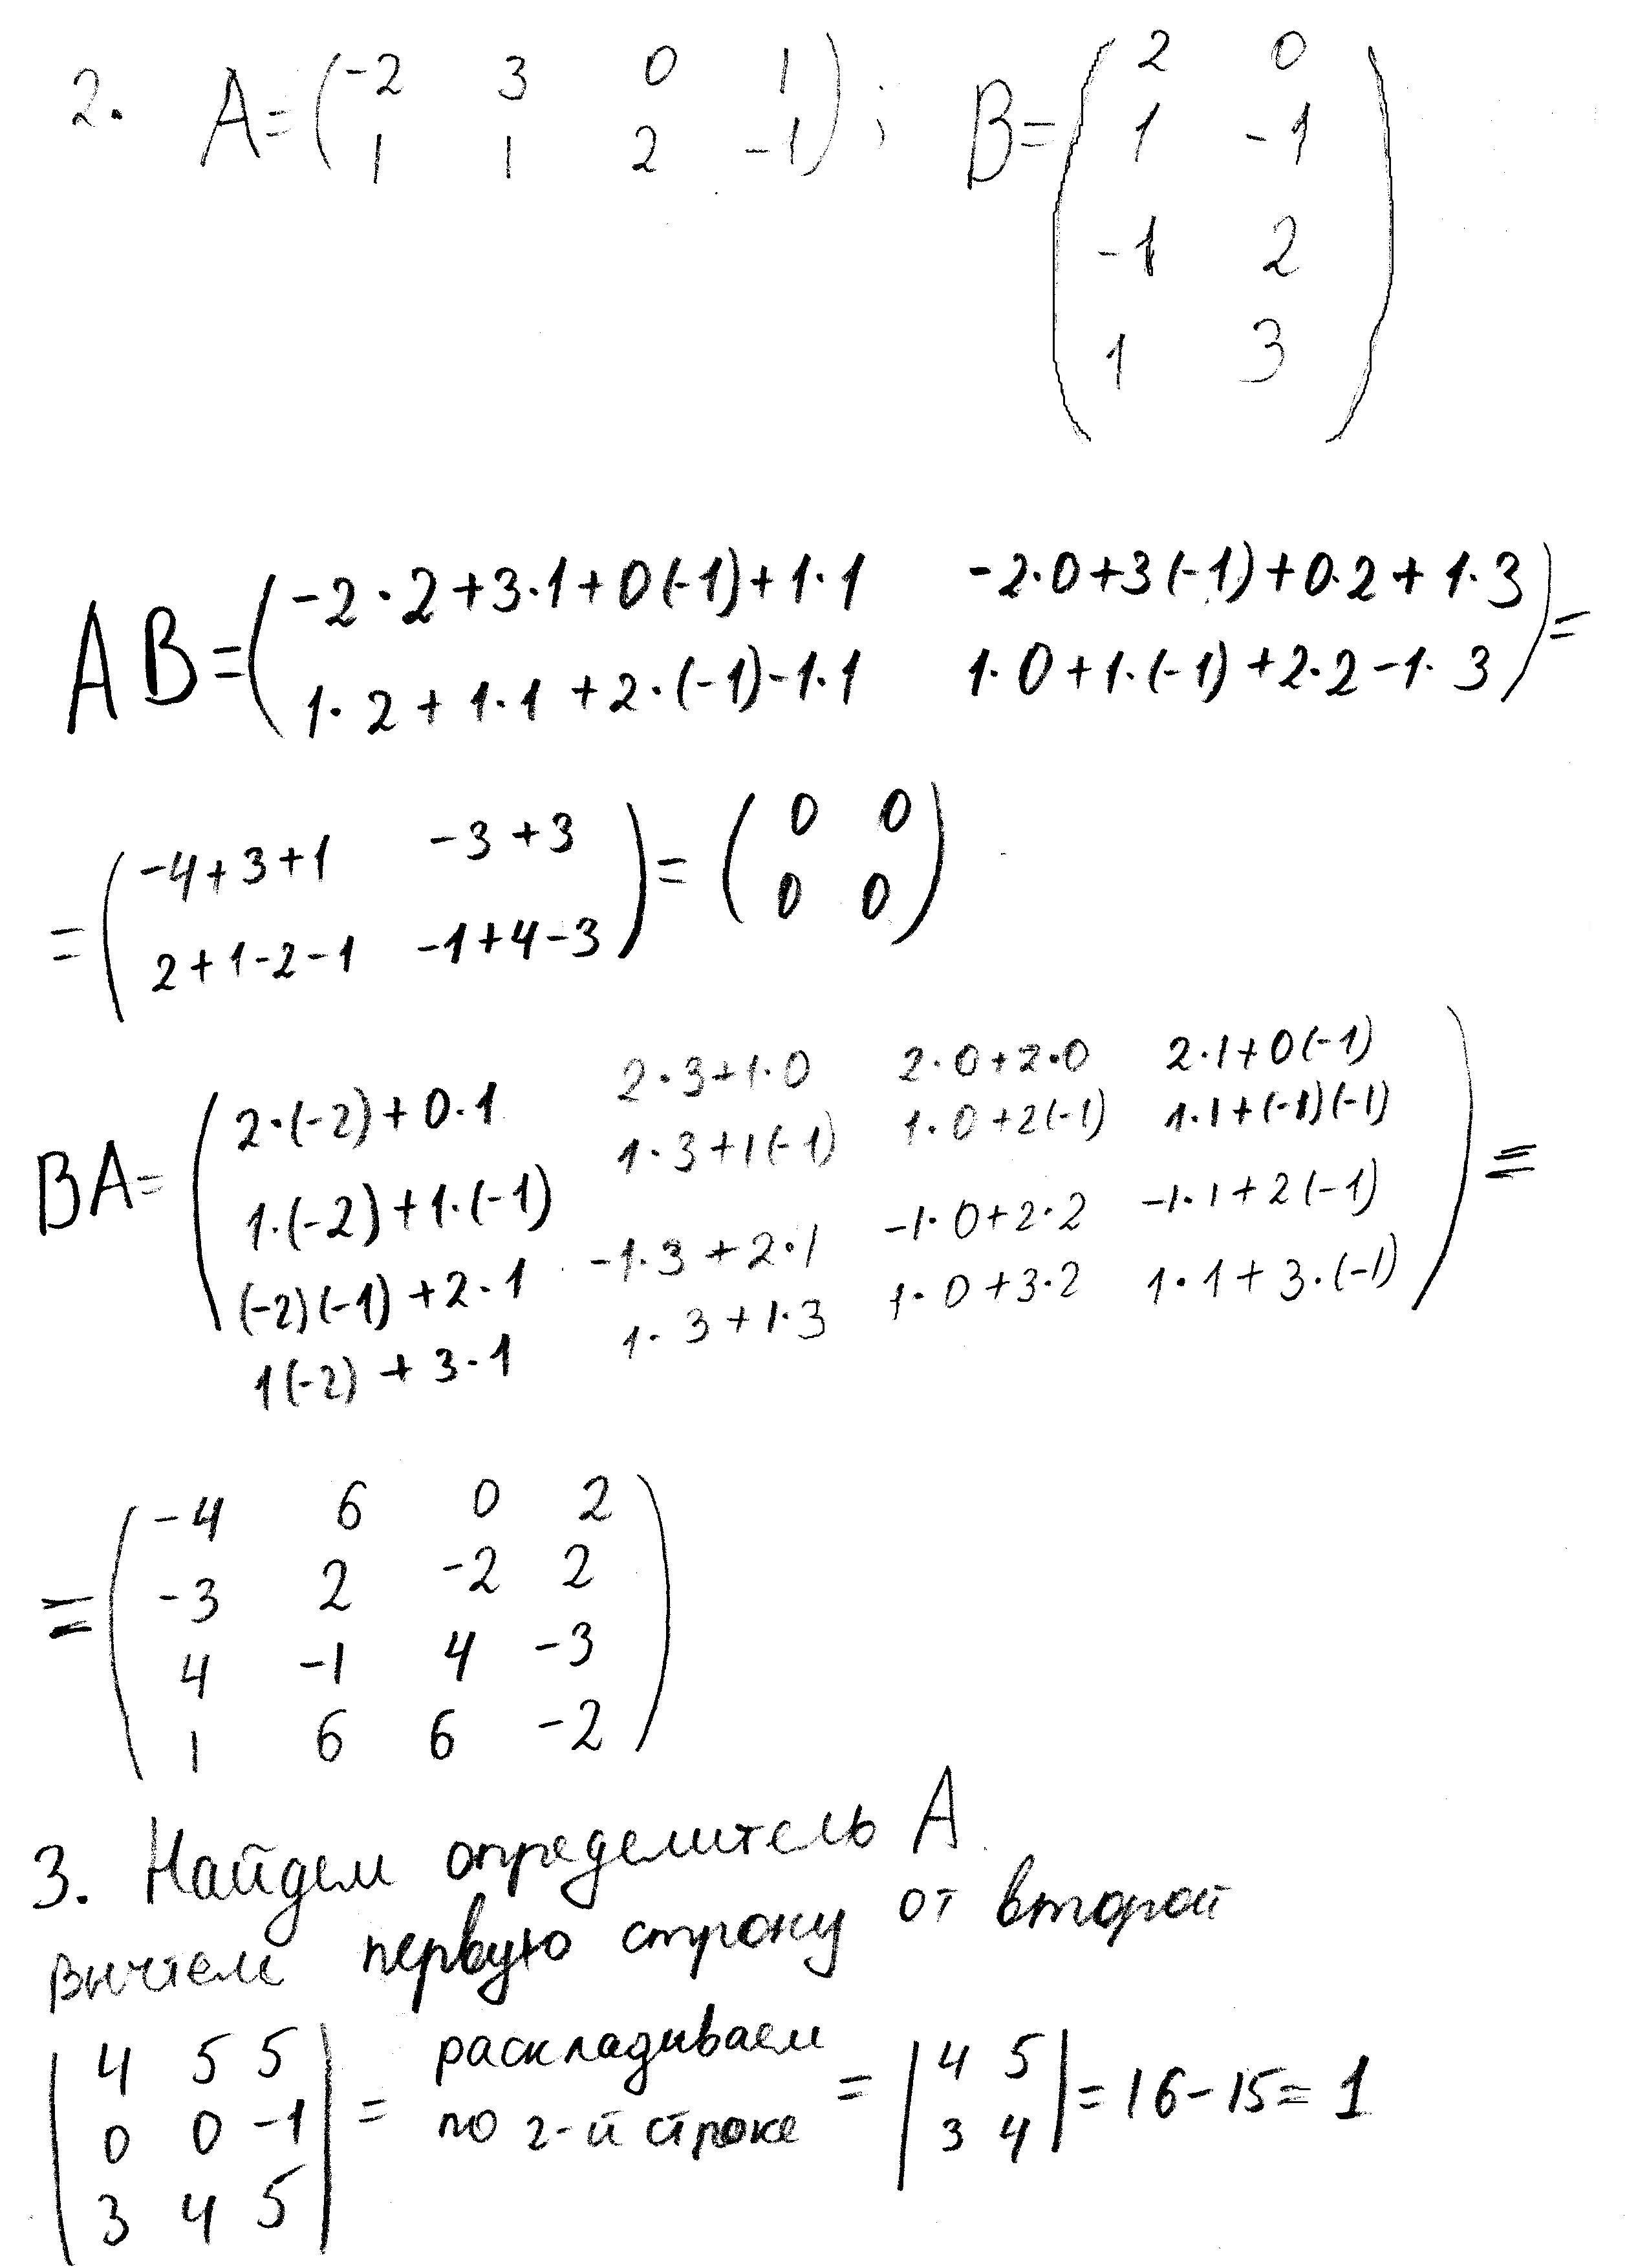 2. A = ( -2 3 0 1 ; B = ( 2 0
1 1 2 -1 ) 1 -1
-1 2
1 3 )
AB = ( -2·2+3·1+0(-1)+1·1 -2·0+3(-1)+0·2+1·3
1·2+1·1+2·(-1)-1·1 1·0+1·(-1)+2·2-1·3 ) =
= ( -4+3+1 -3+3
2+1-2-1 -1+4-3 ) = ( 0 0
0 0 )
BA = ( 2·(-2)+0·1 2·3+1·0 2·0+2·0 2·1+0(-1)
1·(-2)+1·(-1) 1·3+1(-1) 1·0+2(-1) 1·1+(-1)(-1)
(-2)(-1)+2·1 -1·3+2·1 -1·0+2·2 -1·1+2(-1)
1(-2)+3·1 1·3+1·3 1·0+3·2 1·1+3·(-1) ) =
= ( -4 6 0 2
-3 2 -2 2
4 -1 4 -3
1 6 6 -2 )
3. Найдем определитель A.
Вычтем первую строку от второй
| 4 5 5 |
| 0 0 -1 | = раскладываем по 2-й строке = | 4 5 | = 16-15 = 1
| 3 4 5 | | 3 4 |